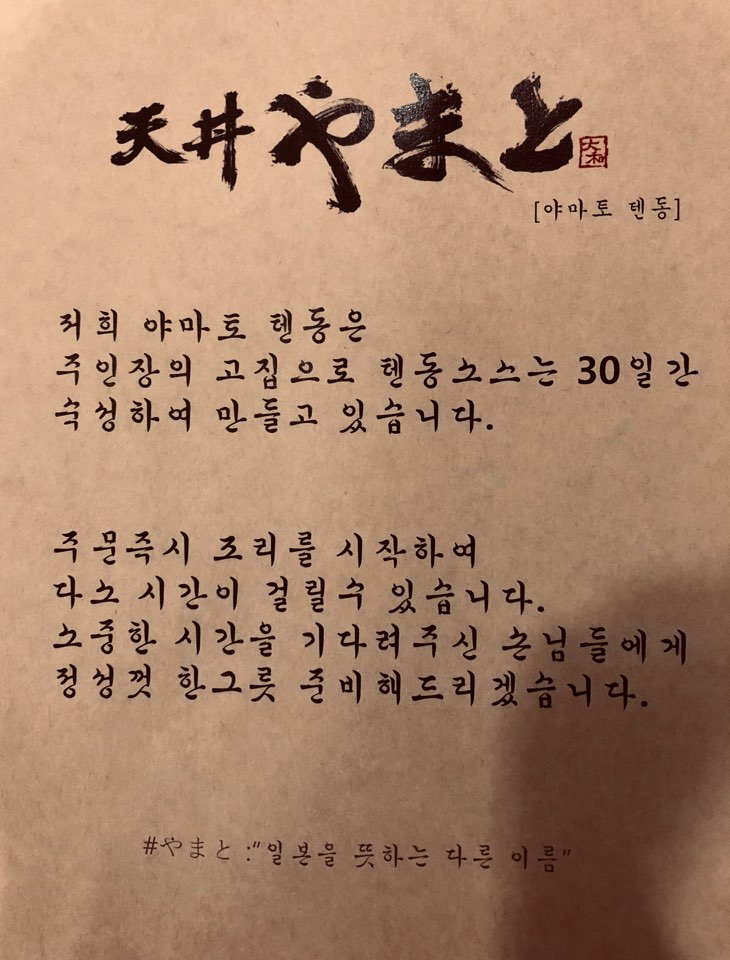 天丼 やまと 大和
[야마토 텐동]
저희 야마토 텐동은
주인장의 고집으로 텐동소스는 30일간
숙성하여 만들고 있습니다.
주문즉시 조리를 시작하여
다소 시간이 걸릴수 있습니다.
소중한 시간을 기다려주신 손님들에게
정성껏 한그릇 준비해드리겠습니다.
#やまと:"일본을 뜻하는 다른 이름"